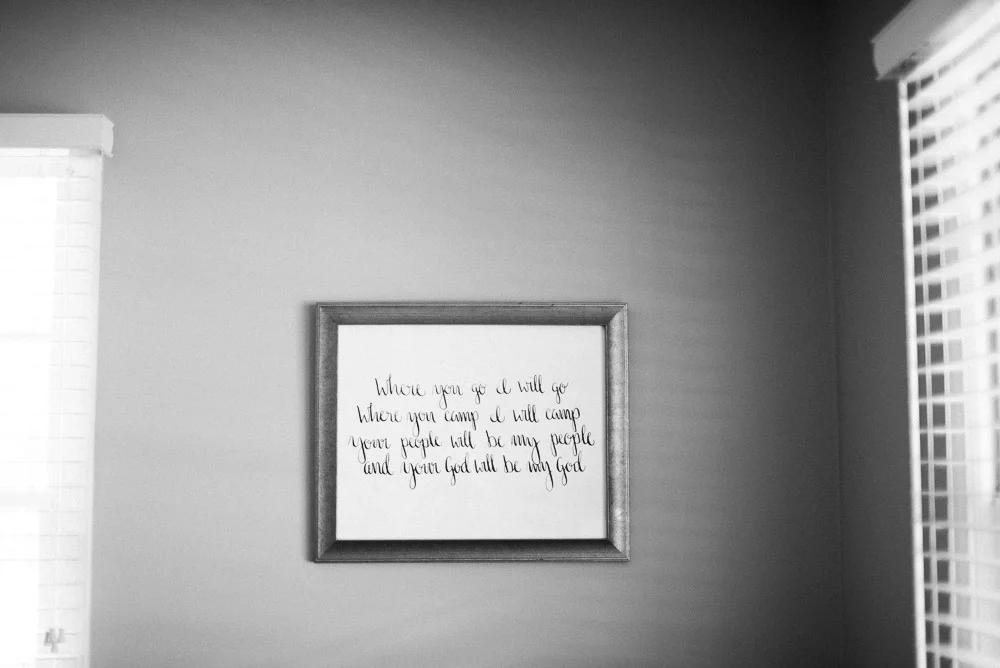 Where you go I will go
Where you camp I will camp
your people will be my people
and your God will be my God